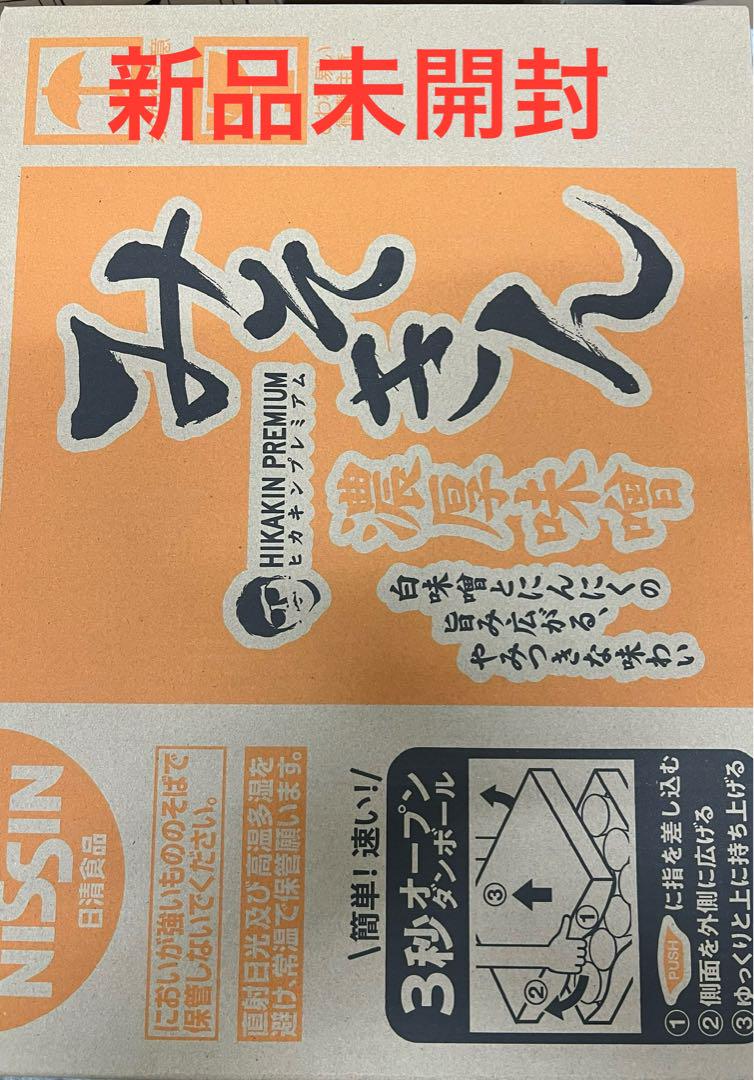 新品未開封
みそきん
HIKAKIN PREMIUM
ヒカキンプレミアム
濃厚味噌
白味噌とにんにくの
旨み広がる、
やみつきな味わい
NISSIN
日清食品
においが強いもののそばで
保管しないでください。
直射日光及び高温多湿を
避け、常温で保管願います。
\簡単!速い!/
3秒オープン
ダンボール
①
②
③
① PUSH に指を差し込む
② 側面を外側に広げる
③ ゆっくりと上に持ち上げる